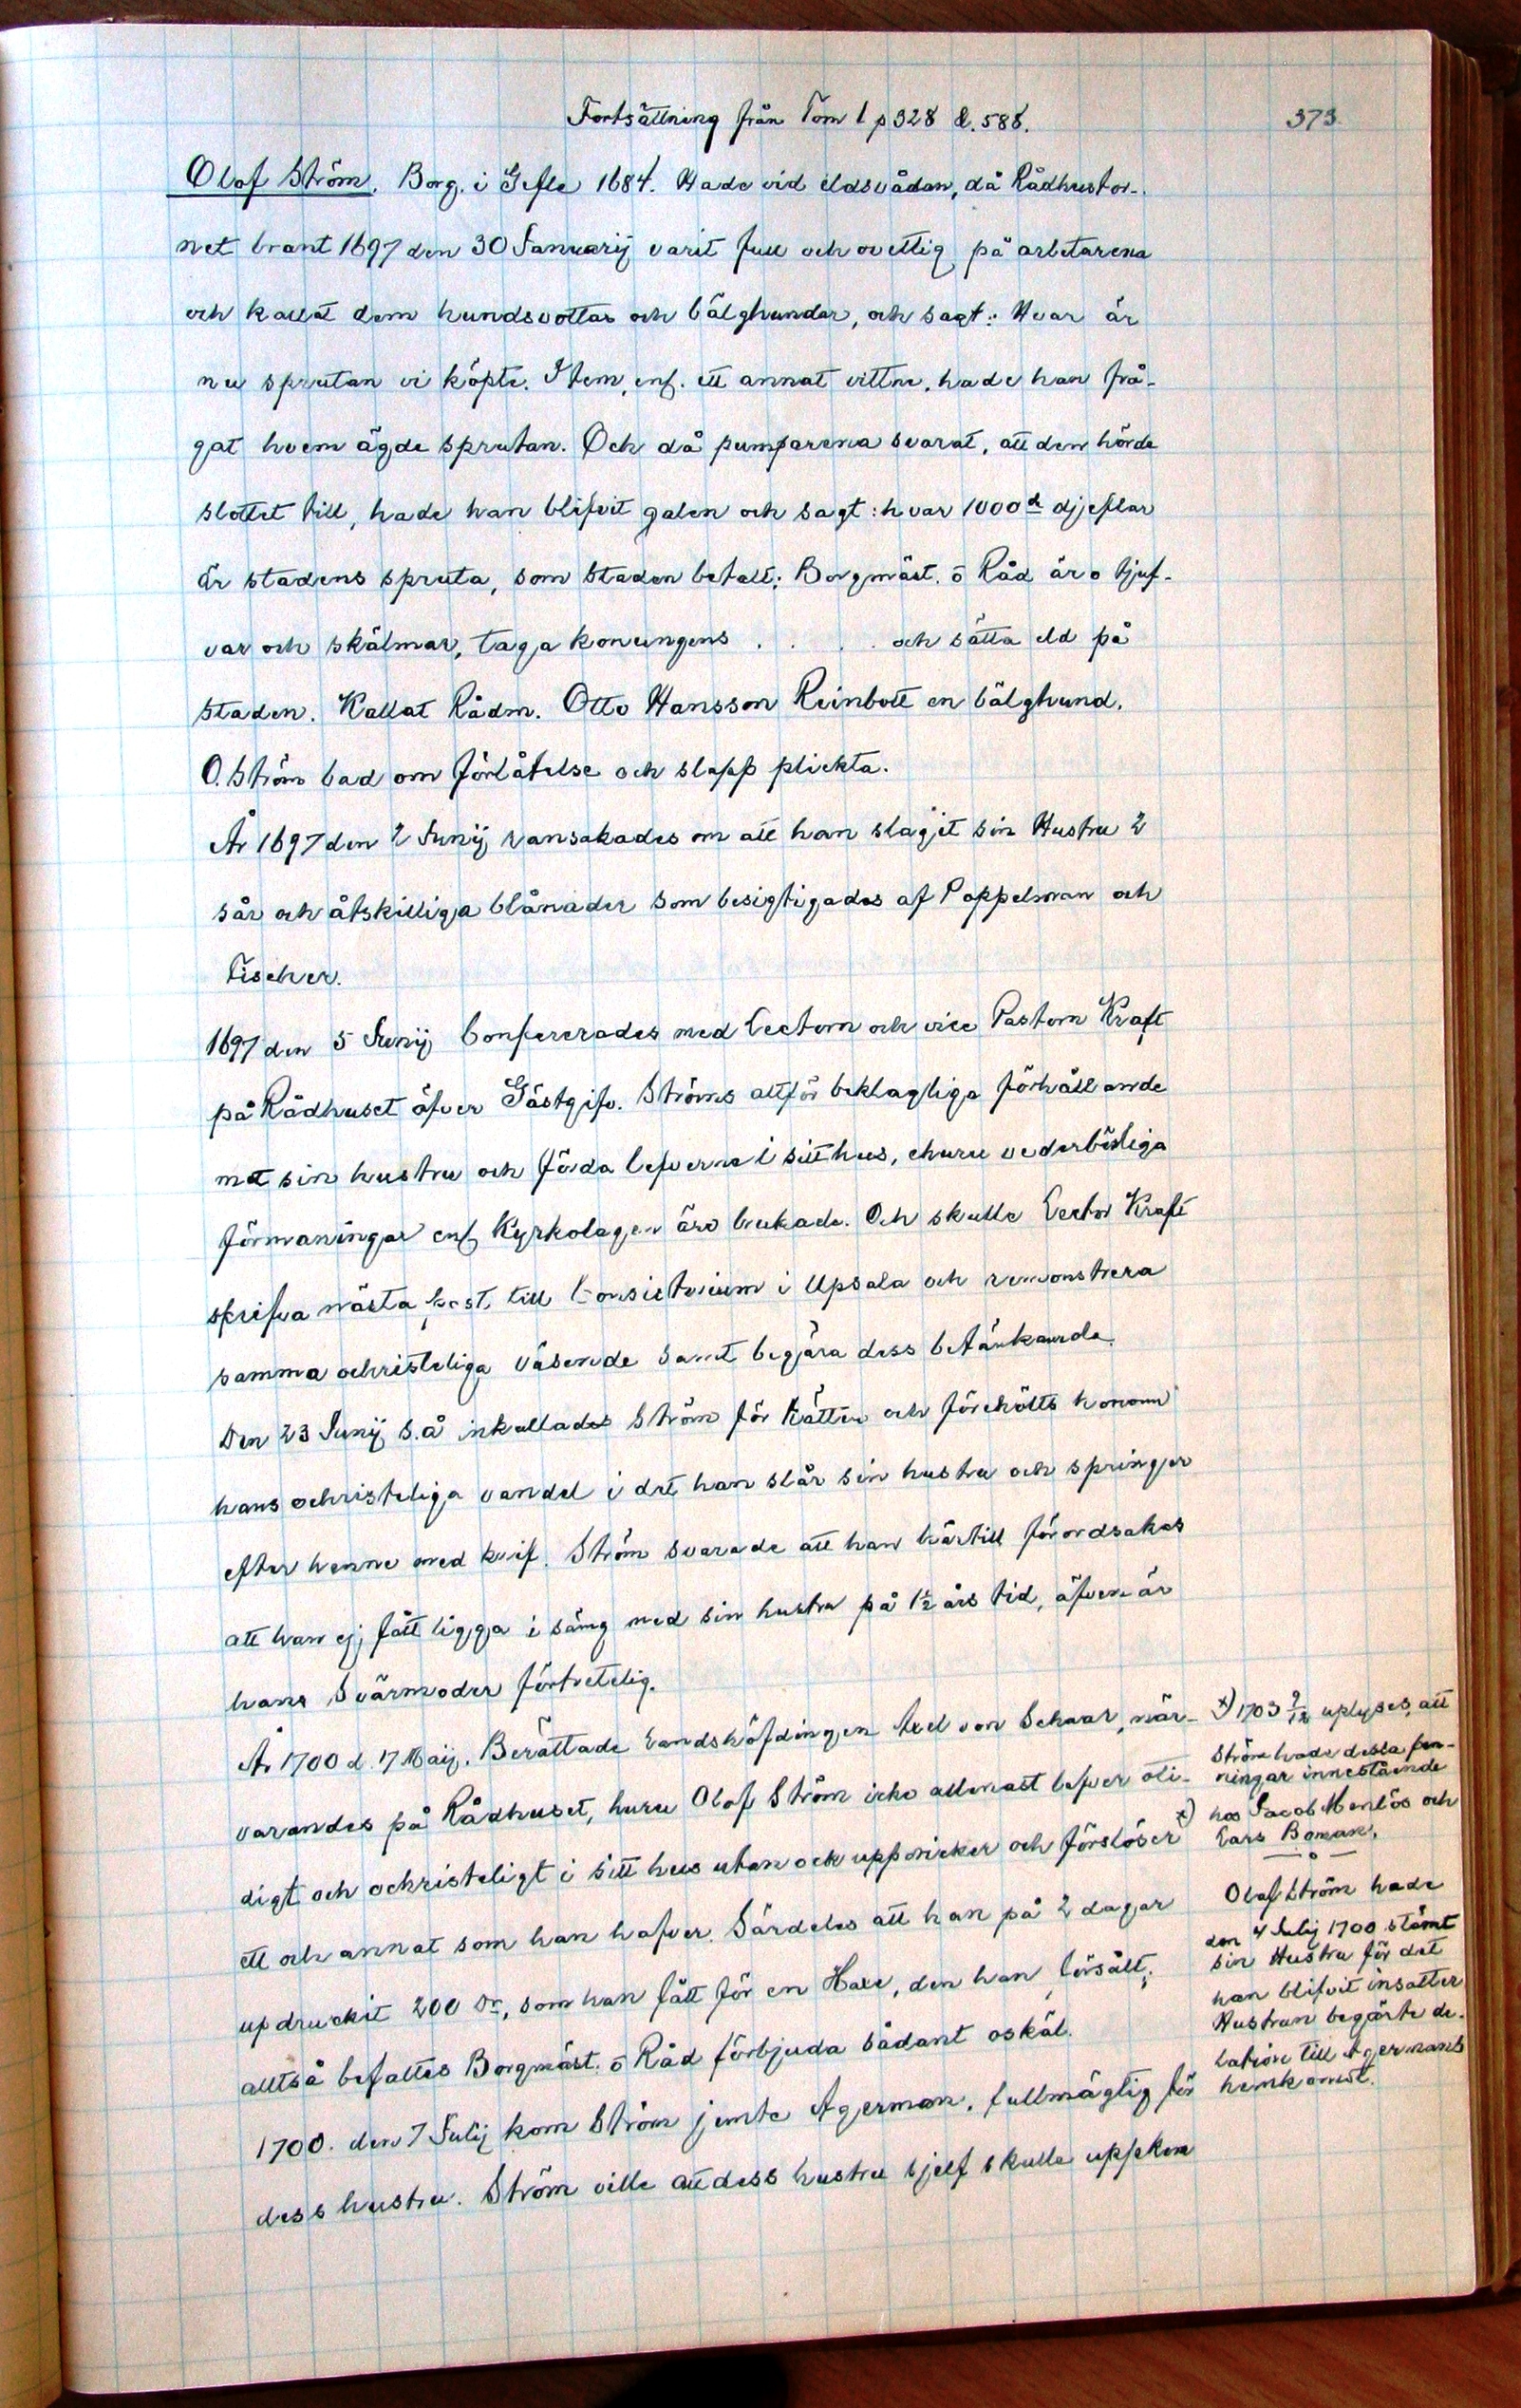 Fortsättning från Tom 1 p 328 & 588.
373.
Olof Ström. Borg. i Gefle 1684. Hade vid eldsvådan, då Rådhustor-
net brant 1697 den 30 Januarij varit full och ovettig på arbetarena
och kallat dem hundsvottar och bälghundar, och sagt: Hvar är
nu sprutan vi köpte. Item, enl. ett annat vittne, hade han frå-
gat hvem ägde sprutan. Och då pumparena svarat, att den hörde
slottet till, hade han blifvit galen och sagt: hvar 1000de djeflar
är stadens spruta, som staden betalt; Borgmäst. o Råd äro tjuf-
var och skälmar, taga konungens . . . . och sätta eld på
staden. Kallat Rådm. Otto Hansson Reinbott en bälghund.
O. Ström bad om förlåtelse och slapp plickta.
År 1697 den 2 Junij ransakades om att han slagjt sin Hustru 2
sår och åtskilliga blånader som besigtigades af Poppelman och
Fischer.
1697 den 5 Junij Confererades med Lectorn och vice Pastorn Kraft
på Rådhuset öfver Gästgifv. Ströms altför beklagliga förhållande
mot sin hustru och förda lefverne i sitt hus, ehuru vederbörliga
förmaningar enl. Kyrkolagen äro brukade. Och skulle Lector Kraft
skrifva nästa post, till Consistorium i Upsala och remonstrera
samma ochristeliga väsende samt begära dess betänkande.
Den 23 Junij s.å inkallades Ström för Rätten och förehölts honom
hans ochristeliga vandel i det han slår sin hustru och springer
efter henne med knif. Ström svarade att han härtill förordsakas
att han ej fått ligga i säng med sin hustru på 1½ års tid, äfven är
hans Svärmoder förtretelig.
År 1700 d. 17 Maij. Berättade Landshöfdingen Axel von Schaar, när-
varandes på Rådhuset, huru Olof Ström icke allenast lefver oti-
digt och ochristeligt i sitt hus utan ock uppsicker och förslöser x)
ett och annat som han hafver. Särdeles att han på 2 dagar
updruckit 200 Dr, som han fått för en Haxe, den han försålt;
alltså befaltes Borgmäst. o Råd förbjuda sådant oskäl.
1700. den 7 Julij kom Ström jemte Agerman, fullmägtig för
dess hustru. Ström ville att dess hustru sjelf skulle uppkom
x) 1703 9/12 uplyses, att
Ström hade dessa pen-
ningar innestående
hos Jacob Menlös och
Lars Boman.
Olof Ström hade
den 4 Julij 1700 stämt
sin Hustru för det
han blifvit insatter
Hustrun begärte de-
lation till Agermans
hemkomst.